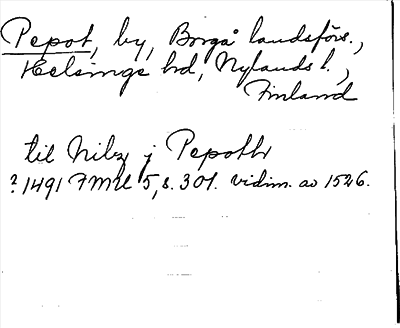 Pepot, by, Borgå landsförs.,
Helsinge hd, Nylands l.,
Finland
til Nilz j Pepoth
? 1491 FMU 5, s. 301. vidim. av 1526.